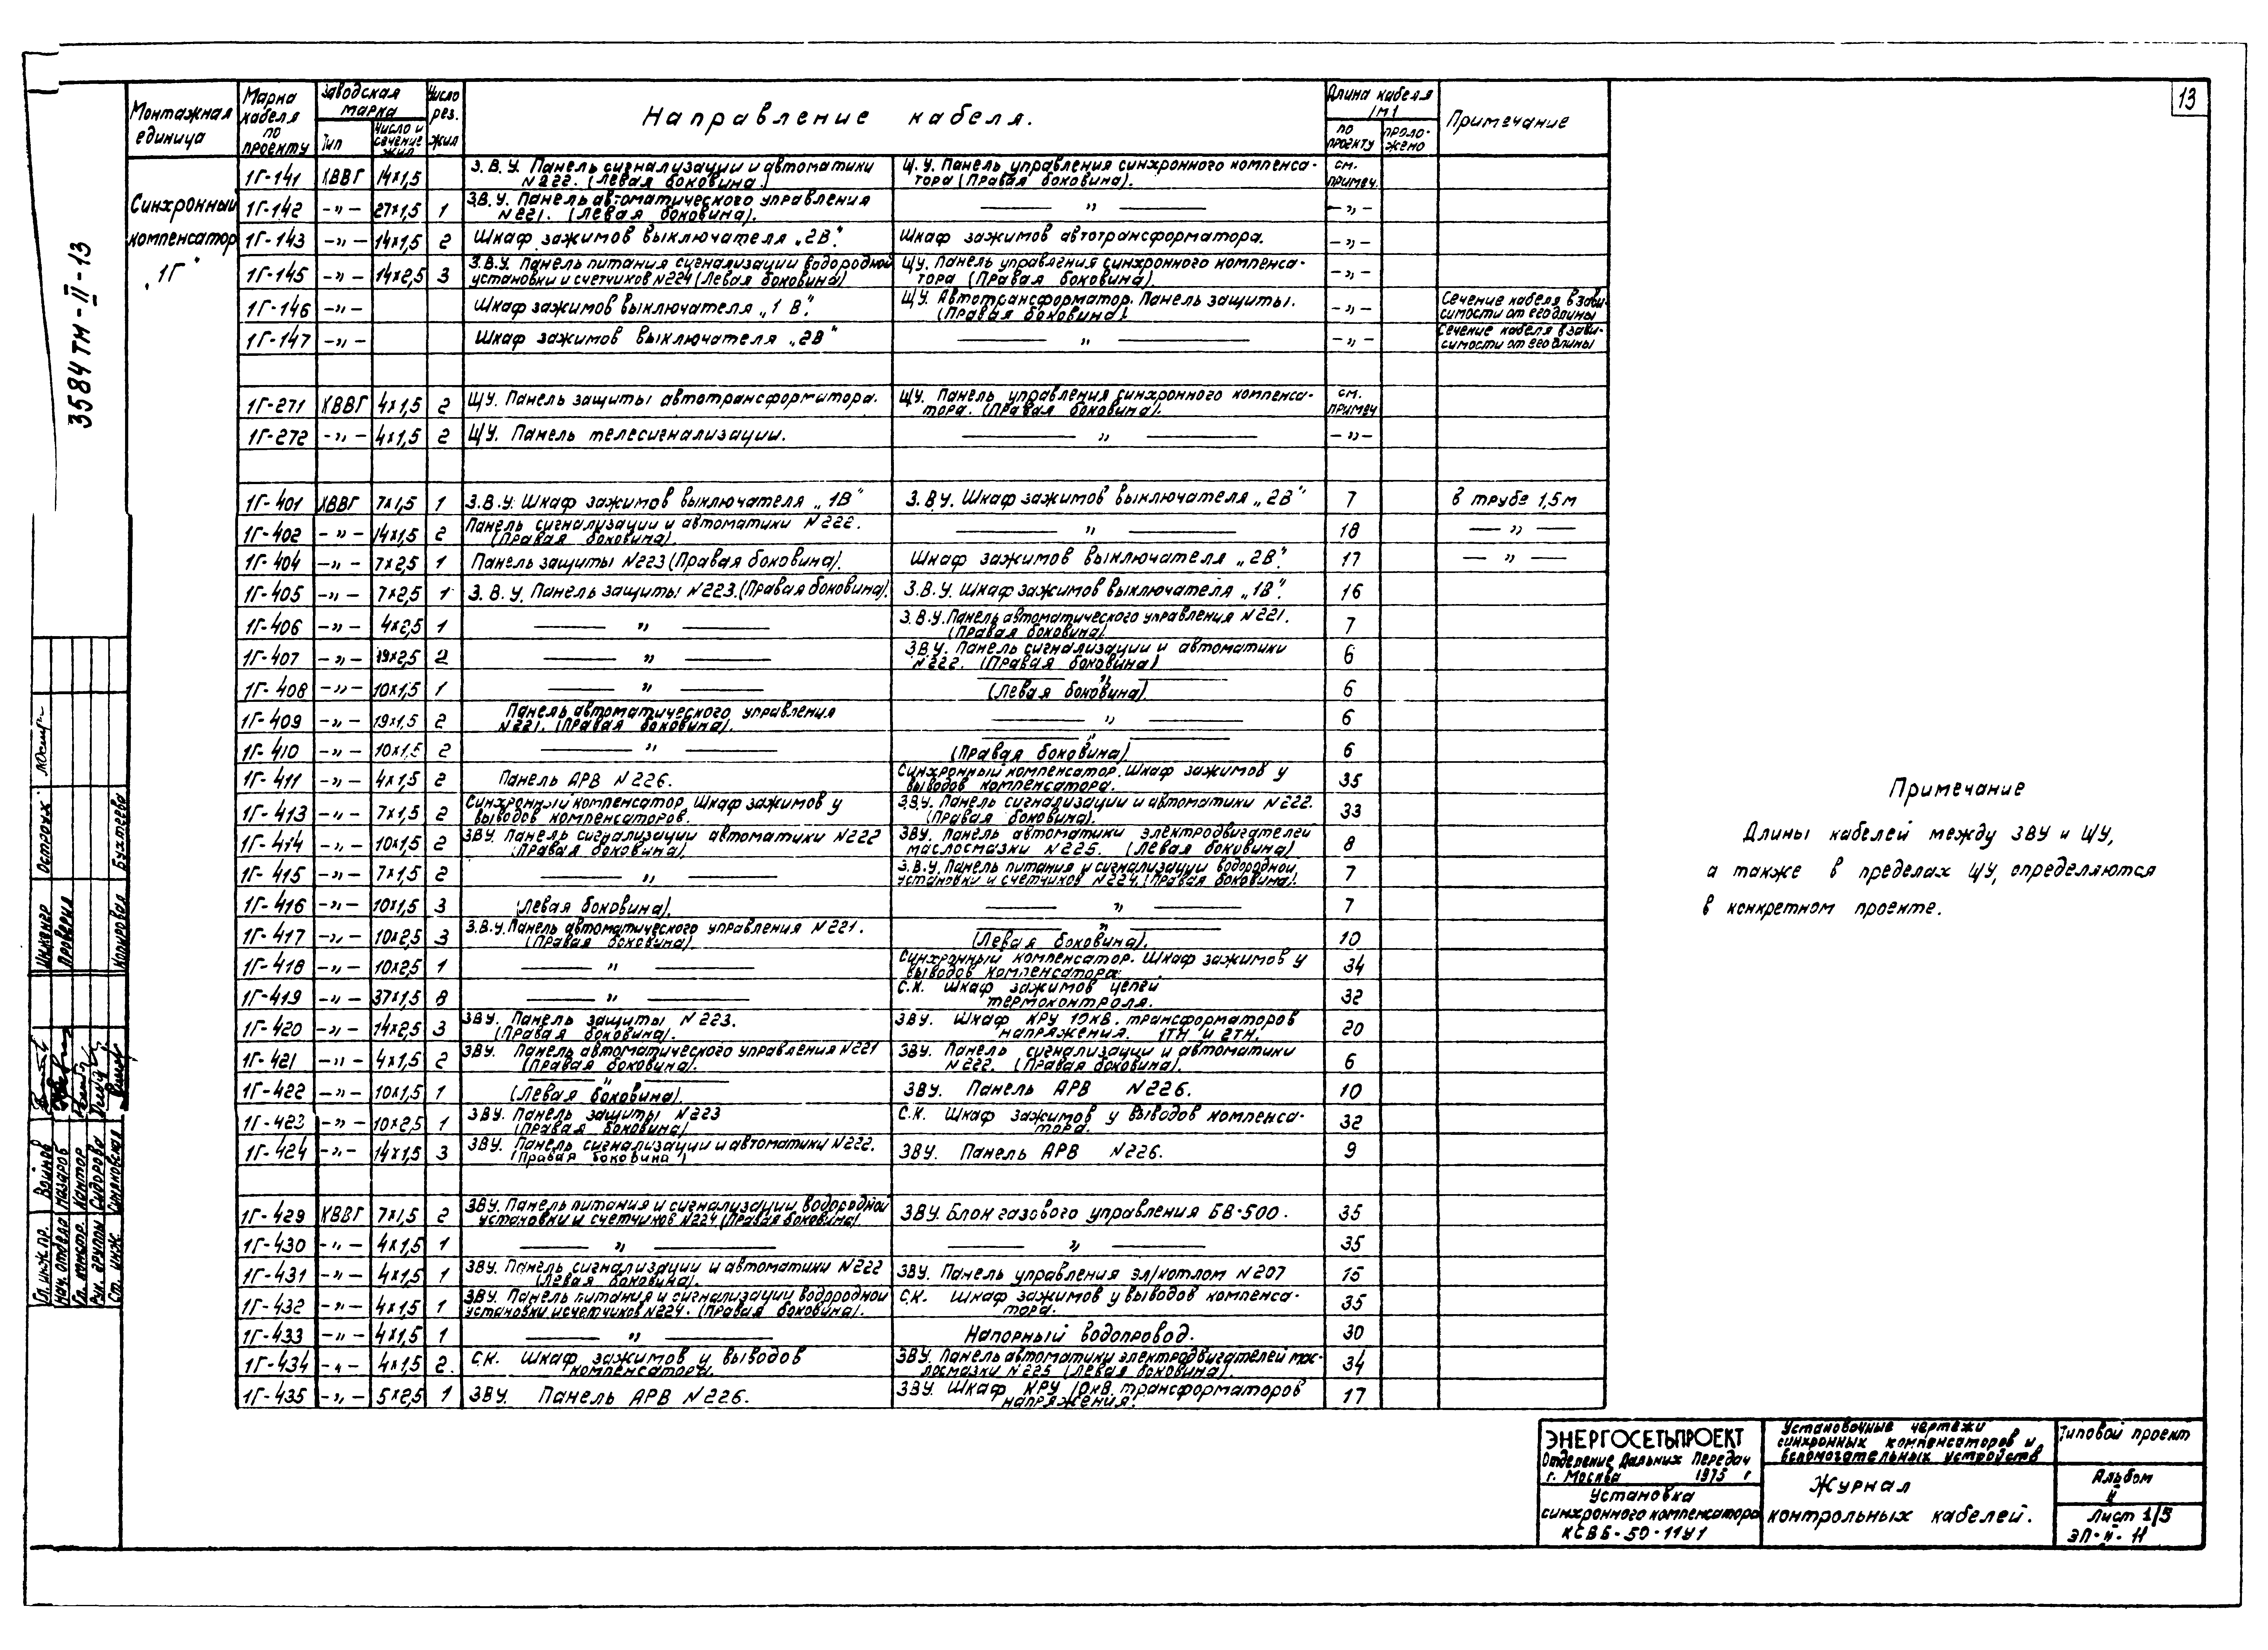 13
3584тм-II-13
Монтажная единица | Марка кабеля по проекту | Заводская марка: Тип | Число и сечение жил | Число рез. жил | Направление кабеля. | Длина кабеля /м/: по проекту | проложено | Примечание
Синхронный
компенсатор
„1Г“
1Г-141 КВВГ 14х1,5 З.В.У. Панель сигнализации и автоматики N222. (Левая боковина.) Щ.У. Панель управления синхронного компенсатора (Правая боковина). см. примеч.
1Г-142 -„- 27х1,5 1 З.В.У. Панель автоматического управления N221. (Левая боковина). -„- -„-
1Г-143 -„- 14х1,5 2 Шкаф зажимов выключателя „2В“. Шкаф зажимов автотрансформатора. -„-
1Г-145 -„- 14х2,5 3 З.В.У. Панель питания сигнализации водородной установки и счетчиков N224 (Левая боковина) ЩУ. Панель управления синхронного компенсатора (Правая боковина). -„-
1Г-146 -„- Шкаф зажимов выключателя „1В“. ЩУ. Автотрансформатор. Панель защиты. (Правая боковина). -„- Сечение кабеля в зависимости от его длины
1Г-147 -„- Шкаф зажимов выключателя „2В“ -„- -„- Сечение кабеля в зависимости от его длины
1Г-271 КВВГ 4х1,5 2 ЩУ. Панель защиты автотрансформатора. ЩУ. Панель управления синхронного компенсатора. (Правая боковина). см. примеч
1Г-272 -„- 4х1,5 2 ЩУ. Панель телесигнализации. -„- -„-
1Г-401 КВВГ 7х1,5 1 З.В.У. Шкаф зажимов выключателя „1В“ З.ВУ. Шкаф зажимов выключателя „2В“ 7 в трубе 1,5м
1Г-402 -„- 14х1,5 2 Панель сигнализации и автоматики N222. (Правая боковина). -„- 18 -„-
1Г-404 -„- 7х2,5 1 Панель защиты N223 (Правая боковина). Шкаф зажимов выключателя „2В“. 17 -„-
1Г-405 -„- 7х2,5 1 З.В.У. Панель защиты N223.(Правая боковина). З.В.У. Шкаф зажимов выключателя „1В“. 16
1Г-406 -„- 4х2,5 1 -„- З.В.У. Панель автоматического управления N221. (Правая боковина) 7
1Г-407 -„- 19х2,5 2 -„- З.ВУ. Панель сигнализации и автоматики N222. (Правая боковина) 6
1Г-408 -„- 10х1,5 1 -„- -„- (Левая боковина) 6
1Г-409 -„- 19х1,5 2 Панель автоматического управления N221. (Правая боковина). -„- 6
1Г-410 -„- 10х1,5 2 -„- -„- (Правая боковина) 6
1Г-411 -„- 4х1,5 2 Панель АРВ N226. Синхронный компенсатор. Шкаф зажимов у выводов компенсатора. 35
1Г-413 -„- 7х1,5 2 Синхронный компенсатор. Шкаф зажимов у выводов компенсаторов. З.ВУ. Панель сигнализации и автоматики N222. (Правая боковина). 33
1Г-414 -„- 10х1,5 2 ЗВУ. Панель сигнализации автоматики N222 (Правая боковина). ЗВУ. Панель автоматики электродвигателей маслосмазки N225. (Левая боковина) 8
1Г-415 -„- 7х1,5 2 -„- З.В.У. Панель питания и сигнализации водородной установки и счетчиков N224. (Правая боковина). 7
1Г-416 -„- 10х1,5 3 (Левая боковина). -„- 7
1Г-417 -„- 10х2,5 3 З.В.У. Панель автоматического управления N221. (Правая боковина) -„- (Левая боковина). 10
1Г-418 -„- 10х2,5 1 -„- Синхронный компенсатор. Шкаф зажимов у выводов компенсатора. 34
1Г-419 -„- 37х1,5 8 -„- С.К. Шкаф зажимов цепей термоконтроля. 32
1Г-420 -„- 14х2,5 3 ЗВУ. Панель защиты N223. (Правая боковина). ЗВУ. Шкаф КРУ 10кВ. трансформаторов напряжения. 1ТН и 2ТН. 20
1Г-421 -„- 4х1,5 2 ЗВУ. Панель автоматического управления N221 (Правая боковина). ЗВУ. Панель сигнализации и автоматики N222. (Правая боковина). 6
1Г-422 -„- 10х1,5 1 -„- (Левая боковина). ЗВУ. Панель АРВ N226. 10
1Г-423 -„- 10х2,5 1 ЗВУ. Панель защиты N223 (Правая боковина) С.К. Шкаф зажимов у выводов компенсатора. 32
1Г-424 -„- 14х1,5 3 ЗВУ. Панель сигнализации и автоматики N222. (Правая боковина) ЗВУ. Панель АРВ N226. 9
1Г-429 КВВГ 7х1,5 2 ЗВУ. Панель питания и сигнализации водородной установки и счетчиков N224 (Правая боковина) ЗВУ. Блок газового управления БВ-500. 35
1Г-430 -„- 4х1,5 1 -„- -„- 35
1Г-431 -„- 4х1,5 1 ЗВУ. Панель сигнализации и автоматики N222 (Левая боковина). ЗВУ. Панель управления эл/котлом N207 15
1Г-432 -„- 4х1,5 1 ЗВУ. Панель питания и сигнализации водородной установки и счетчиков N224. (Правая боковина). С.К. Шкаф зажимов у выводов компенсатора. 35
1Г-433 -„- 4х1,5 1 -„- Напорный водопровод. 30
1Г-434 -„- 4х1,5 2. С.К. Шкаф зажимов у выводов компенсатора. ЗВУ. Панель автоматики электродвигателей маслосмазки N225 (Левая боковина). 34
1Г-435 -„- 5х2,5 1 ЗВУ. Панель АРВ N226. ЗВУ. Шкаф КРУ 10кВ. трансформаторов напряжения. 17
Примечание
Длины кабелей между ЗВУ и ЩУ,
а также в пределах ЩУ, определяются
в конкретном проекте.
Инженер Остроух
Проверил
Копировал Бухтеева
Гл. инж. пр. Войнов
Нач. отдела Назаров
Гл. констр. Кантор
Рук. группы Сидорова
Ст. инж.
ЭНЕРГОСЕТЬПРОЕКТ
Отделение Дальних Передач
г. Москва 1975 г
Установка
синхронного компенсатора
КСВБ-50-11У1
Установочные чертежи
синхронных компенсаторов и
вспомогательных устройств
Журнал
контрольных кабелей.
Типовой проект
Альбом
II
Лист 1/5
ЭП-II-11